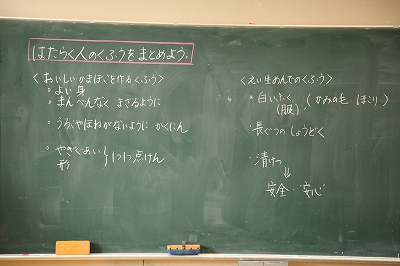 はたらく人のくふうをまとめよう。
<おいしいかまぼこを作るくふう>
○よい身
○まんべんなく まざるように
○うろこやほねがないように かくにん
○やきぐあい
形
}1つ1つ点けん
<えい生めんでのくふう>
・白いふく
(服)
(かみの毛 ほこり)
・長ぐつの しょうどく
・清けつ
⇓
安全・安心